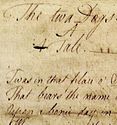 The twa Dogs
A Tale
Twas in that place o'
That bears the name
Upon a bonie day in